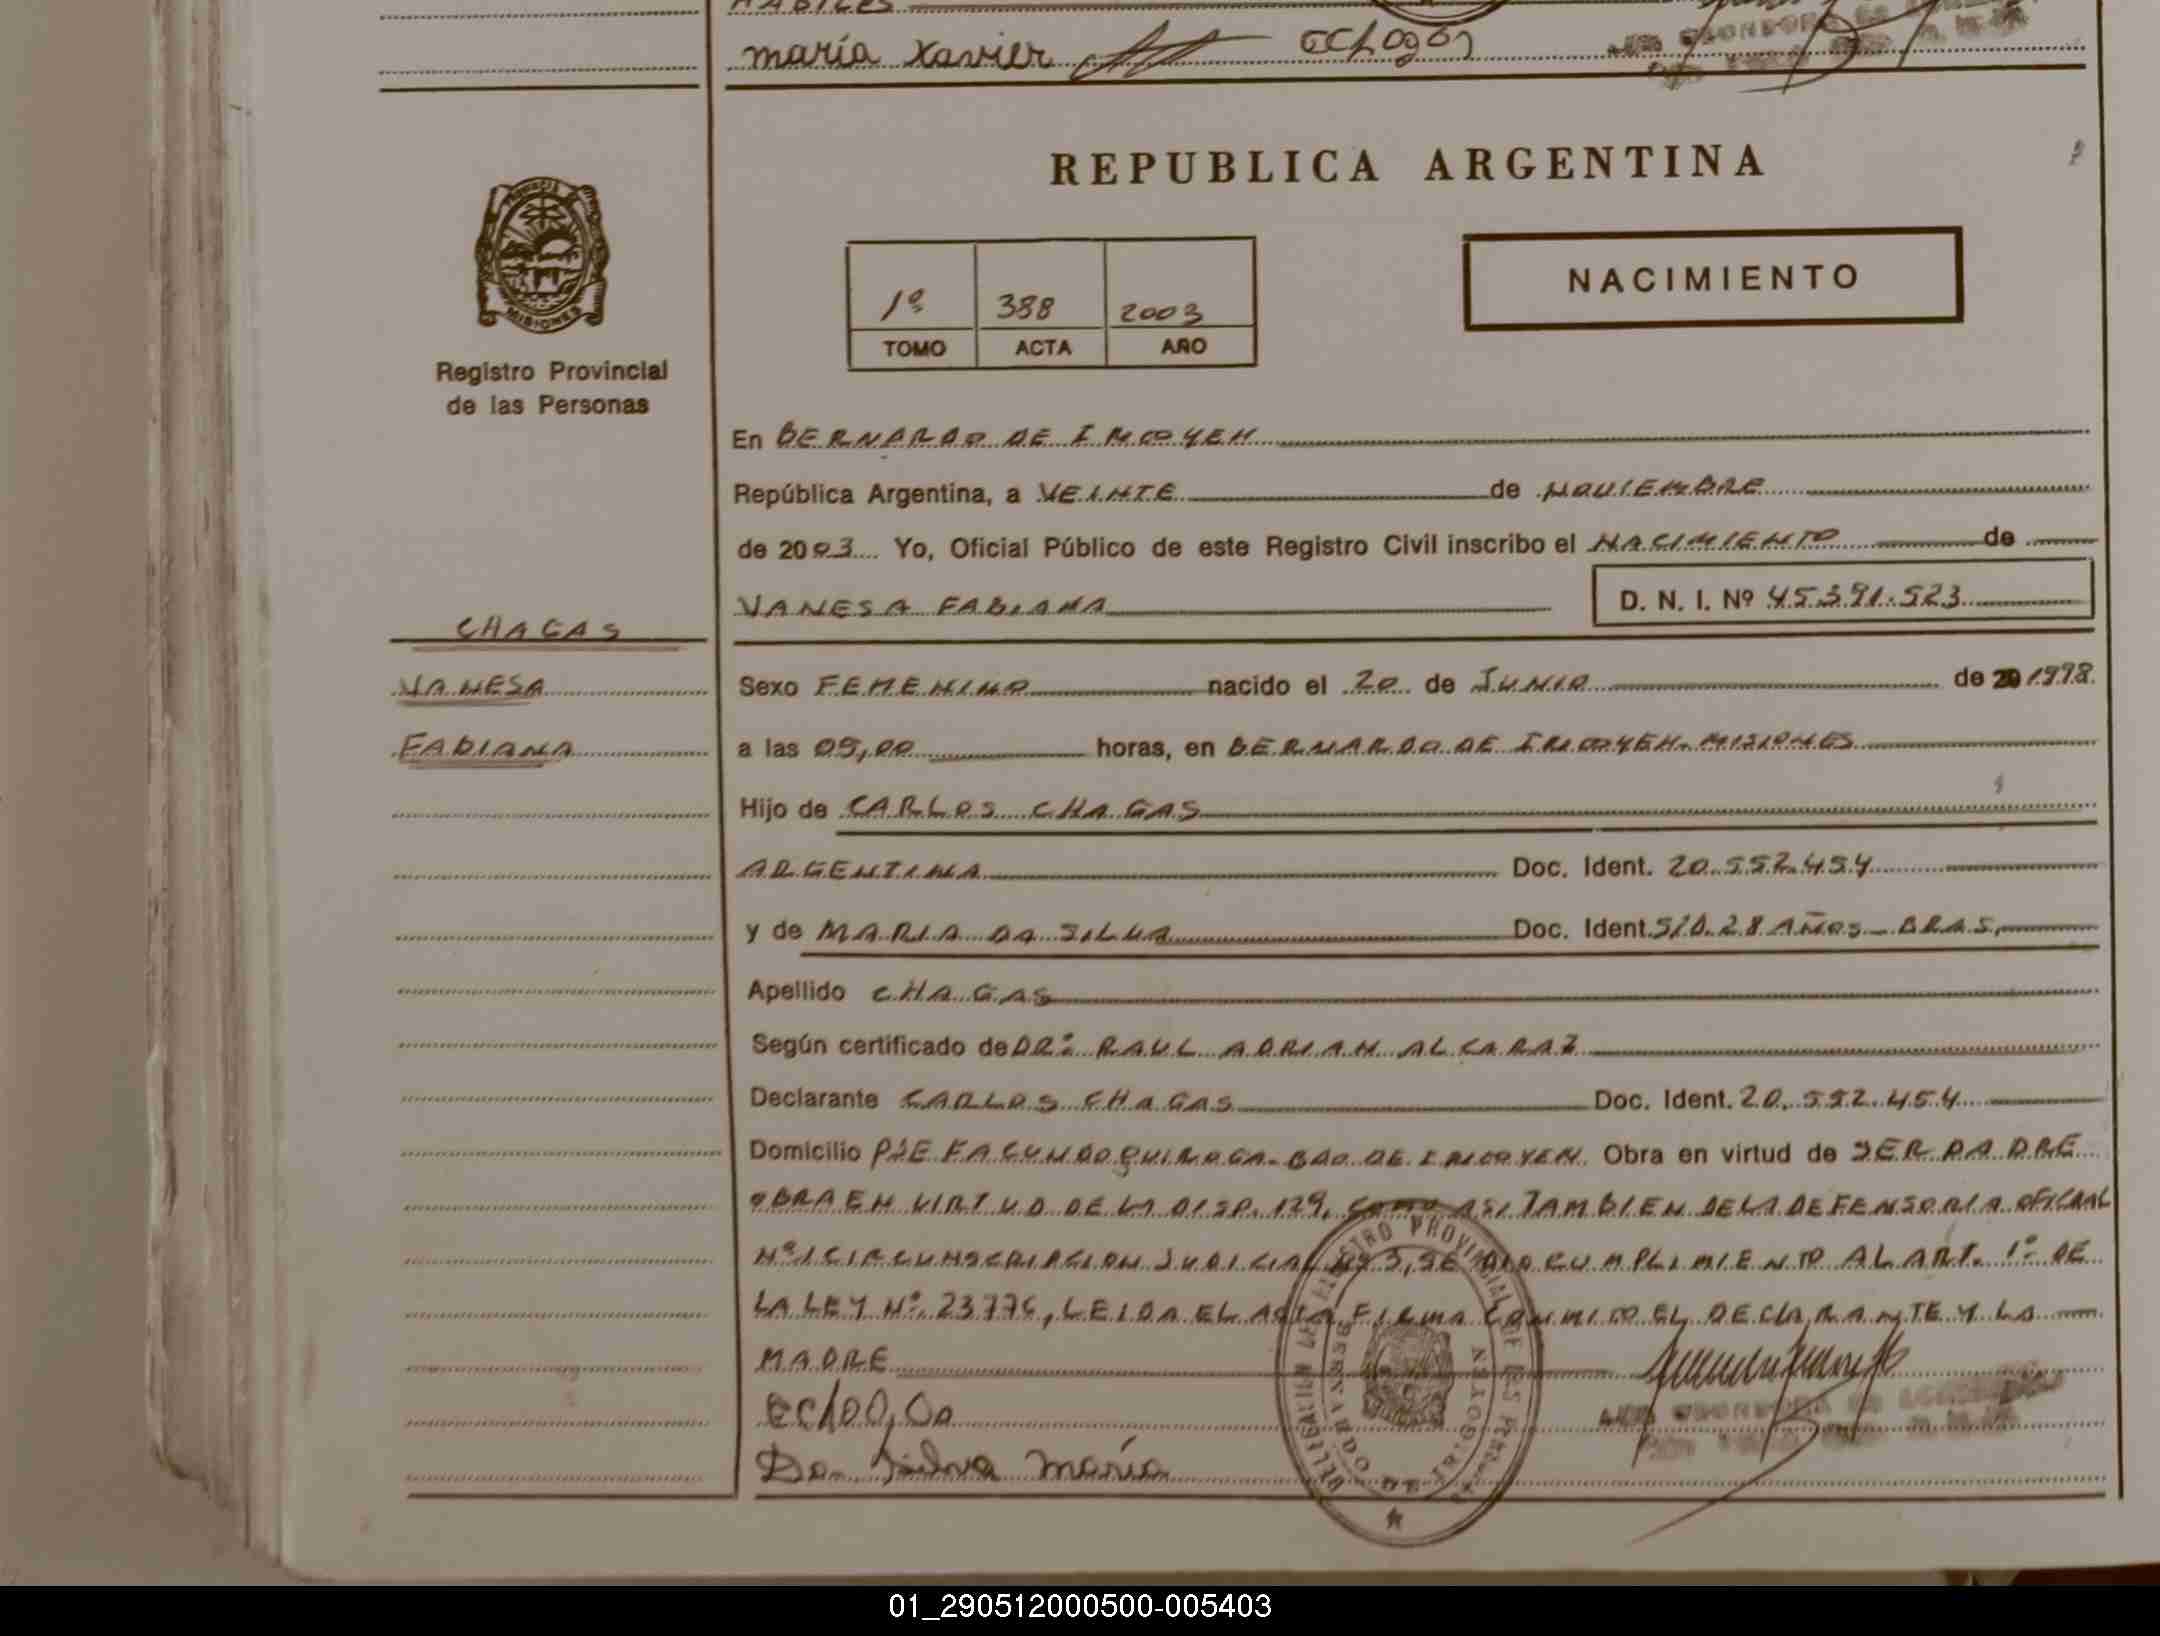 HABILES
maría Xavier
REPUBLICA ARGENTINA
NACIMIENTO
1º 388 2003
TOMO ACTA AÑO
MISIONES
Registro Provincial
de las Personas
En BERNARDO DE IRIGOYEN
República Argentina, a VEINTE de NOVIEMBRE
de 2003 Yo, Oficial Público de este Registro Civil inscribo el NACIMIENTO de
VANESA FABIANA D. N. I. Nº 45.391.523
CHAGAS
VANESA
FABIANA
Sexo FEMENINO nacido el 20 de JUNIO de 20 1998
a las 05,00 horas, en BERNARDO DE IRIGOYEN. MISIONES
Hijo de CARLOS CHAGAS
ARGENTINA Doc. Ident. 20.552.454
y de MARIA DA SILVA Doc. Ident. S/D. 28 AÑOS - BRAS.
Apellido CHAGAS
Según certificado de DR. RAUL ADRIAN ALCARAZ
Declarante CARLOS CHAGAS Doc. Ident. 20.552.454
Domicilio PJE FACUNDO QUIROGA. BDO. DE IRIGOYEN. Obra en virtud de SER PADRE
OBRA EN VIRTUD DE LA DISP. 129, COMO ASI TAMBIEN DE LA DEFENSORIA OFICIAL
Nº 1 CIRCUNSCRIPCION JUDICIAL Nº 3, SE DIO CUMPLIMIENTO AL ART. 1º DE
LA LEY Nº 23776, LEIDA EL ACTA FIRMA CONMIGO EL DECLARANTE Y LA
MADRE
Da Silva María
DELEGACION DEL REGISTRO PROVINCIAL DE LAS PERSONAS
BERNARDO DE IRIGOYEN
01_290512000500-005403